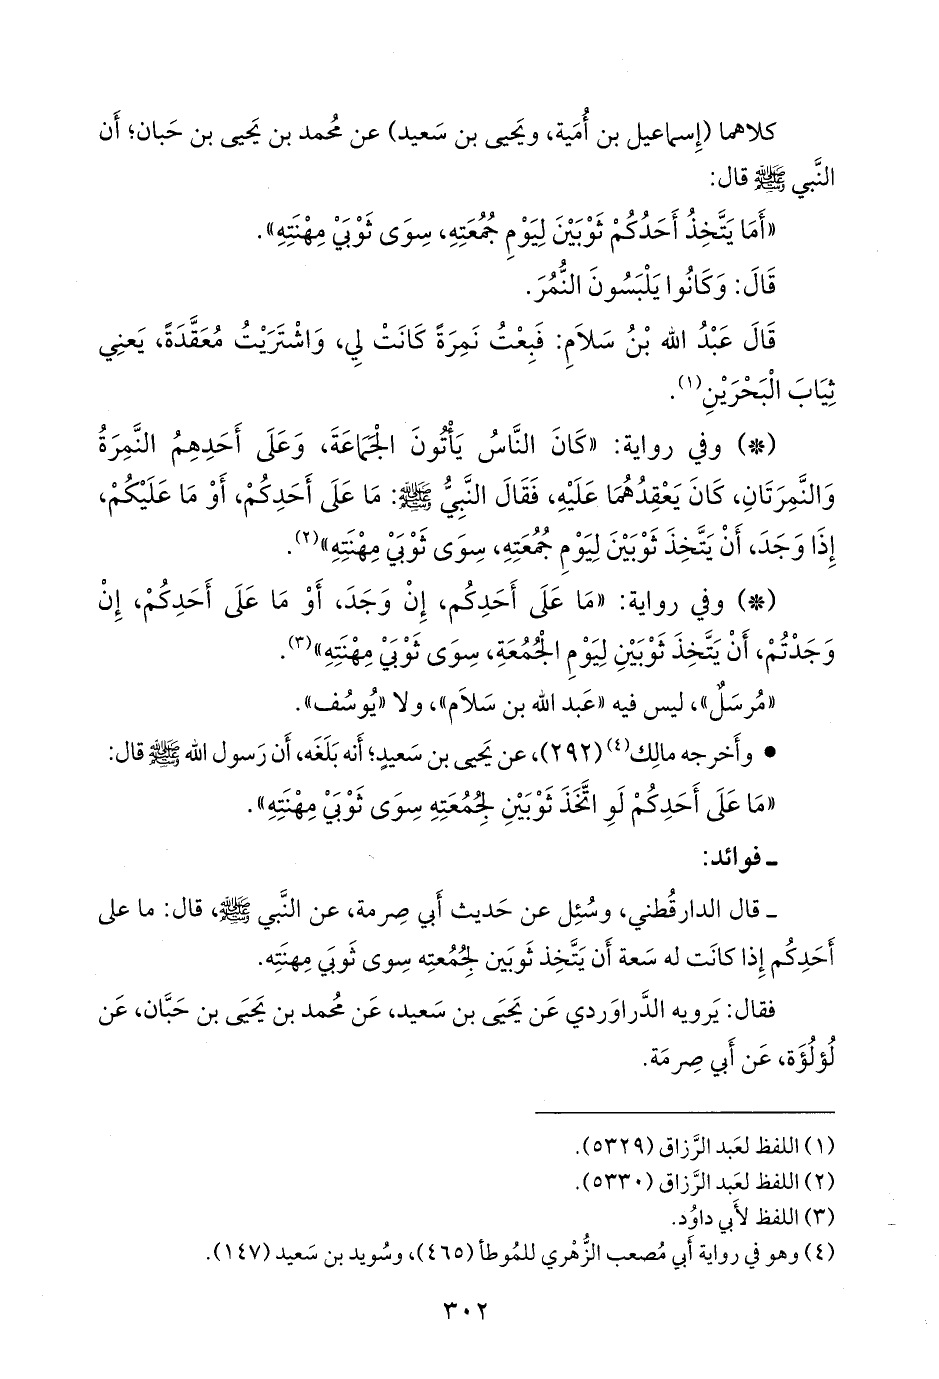 كلاهما (إِسماعيل بن أُمَية، ويَحيى بن سَعيد) عن مُحمد بن يَحيى بن حَبان؛ أَن
النَّبي ﷺ قال:
«أَمَا يَتَّخِذُ أَحَدُكُمْ ثَوْبَيْنَ لِيَوْمِ جُمُعَتِهِ، سِوَى ثَوْبَيْ مِهْنَتِهِ».
قَالَ: وَكَانُوا يَلْبَسُونَ النُّمُرَ.
قَالَ عَبْدُ الله بْنُ سَلاَمِ: فَبِعْتُ نَمِرَةً كَانَتْ لِي، وَاشْتَرَيْتُ مُعَقَّدَةً، يَعنِي
ثِيَابَ الْبَحْرَيْنِ(١).
(*) وفي رواية: «كَانَ النَّاسُ يَأْتُونَ الْجَمَاعَةَ، وَعَلَى أَحَدِهِمُ النَّمِرَةُ
وَالنَّمِرَتَانِ، كَانَ يَعْقِدُهُمَا عَلَيْهِ، فَقَالَ النَّبِيُّ ﷺ: مَا عَلَى أَحَدِكُمْ، أَوْ مَا عَلَيْكُمْ،
إِذَا وَجَدَ، أَنْ يَتَّخِذَ ثَوْبَيْنَ لِيَوْمِ جُمُعَتِهِ، سِوَى ثَوْبَيْ مِهْنَتِهِ»(٢).
(*) وفي رواية: «مَا عَلَى أَحَدِكُم، إِنْ وَجَدَ، أَوْ مَا عَلَى أَحَدِكُمْ، إِنْ
وَجَدْتُمْ، أَنْ يَتَّخِذَ ثَوْبَيْنِ لِيَوْمِ الْجُمُعَةِ، سِوَى ثَوْبَيْ مِهْنَتِهِ»(٣).
«مُرسَلٌ»، ليس فيه «عَبد الله بن سَلاَم»، ولا «يُوسُف».
• وأَخرجه مالِك(٤) (٢٩٢)، عن يَحيى بن سَعيدٍ؛ أَنه بَلَغَه، أَن رَسول الله ﷺ قال:
«مَا عَلَى أَحَدِكُمْ لَوِ اتَّخَذَ ثَوْبَيْنِ لِجُمُعَتِهِ سِوَى ثَوْبَيْ مِهْنَتِهِ».
ـ فوائد:
ـ قال الدارقُطني، وسُئِل عن حَديث أَبي صِرمة، عن النَّبي ﷺ، قال: ما على
أَحَدِكُم إِذا كانَت له سَعة أَن يَتَّخِذ ثَوبَين لِجُمُعتِه سِوى ثَوبَي مِهنَتِه.
فقال: يَرويه الدَّراوَردي عَن يَحيَى بن سَعيد، عَن مُحمد بن يَحيَى بن حَبَّان، عَن
لُؤلُؤَة، عَن أَبي صِرمَة.
(١) اللفظ لعَبد الرَّزاق (٥٣٢٩).
(٢) اللفظ لعَبد الرَّزاق (٥٣٣٠).
(٣) اللفظ لأَبي داوُد.
(٤) وهو في رواية أَبي مُصعب الزُّهْري للمُوطأ (٤٦٥)، وسُويد بن سَعيد (١٤٧).
٣٠٢